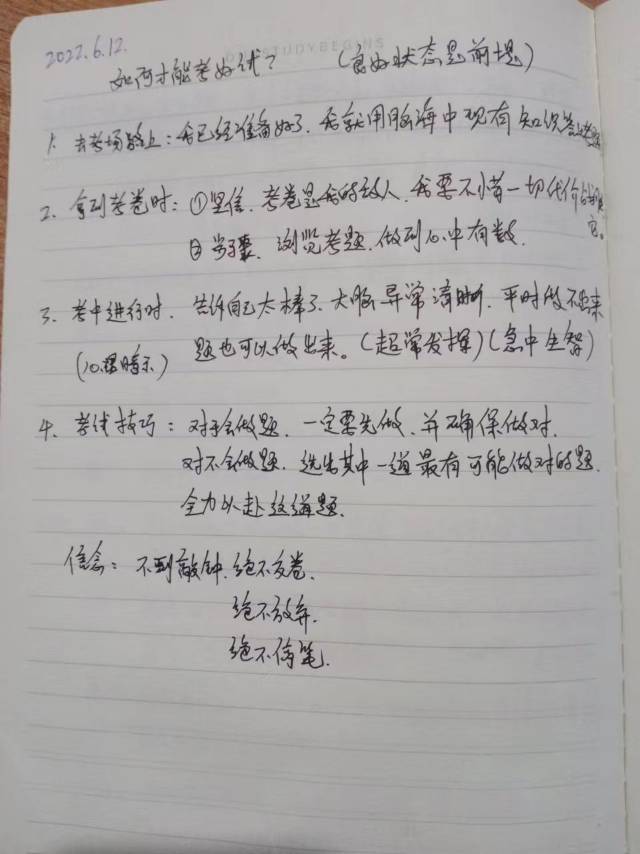 2022.6.12.
STUDY BEGINS
如何才能考好试？ (良好状态是前提)
1. 去考场路上：我已经准备好了，我就用脑海中现有知识答
2. 拿到考卷时：①坚信，考卷是我的敌人，我要不惜一切代价战胜
它。
浏览考题，做到心中有数.
3. 考中进行时，告诉自己太棒了，大脑异常清晰，平时做不出来
(心理暗示) 题也可以做出来。(超常发挥)(急中生智)
4. 考试技巧：对于会做题，一定要先做，并确保做对.
对不会做题，选出其中一道最有可能做对的题.
全力以赴这道题.
信念：不到敲钟，绝不交卷.
绝不放弃.
绝不停笔.